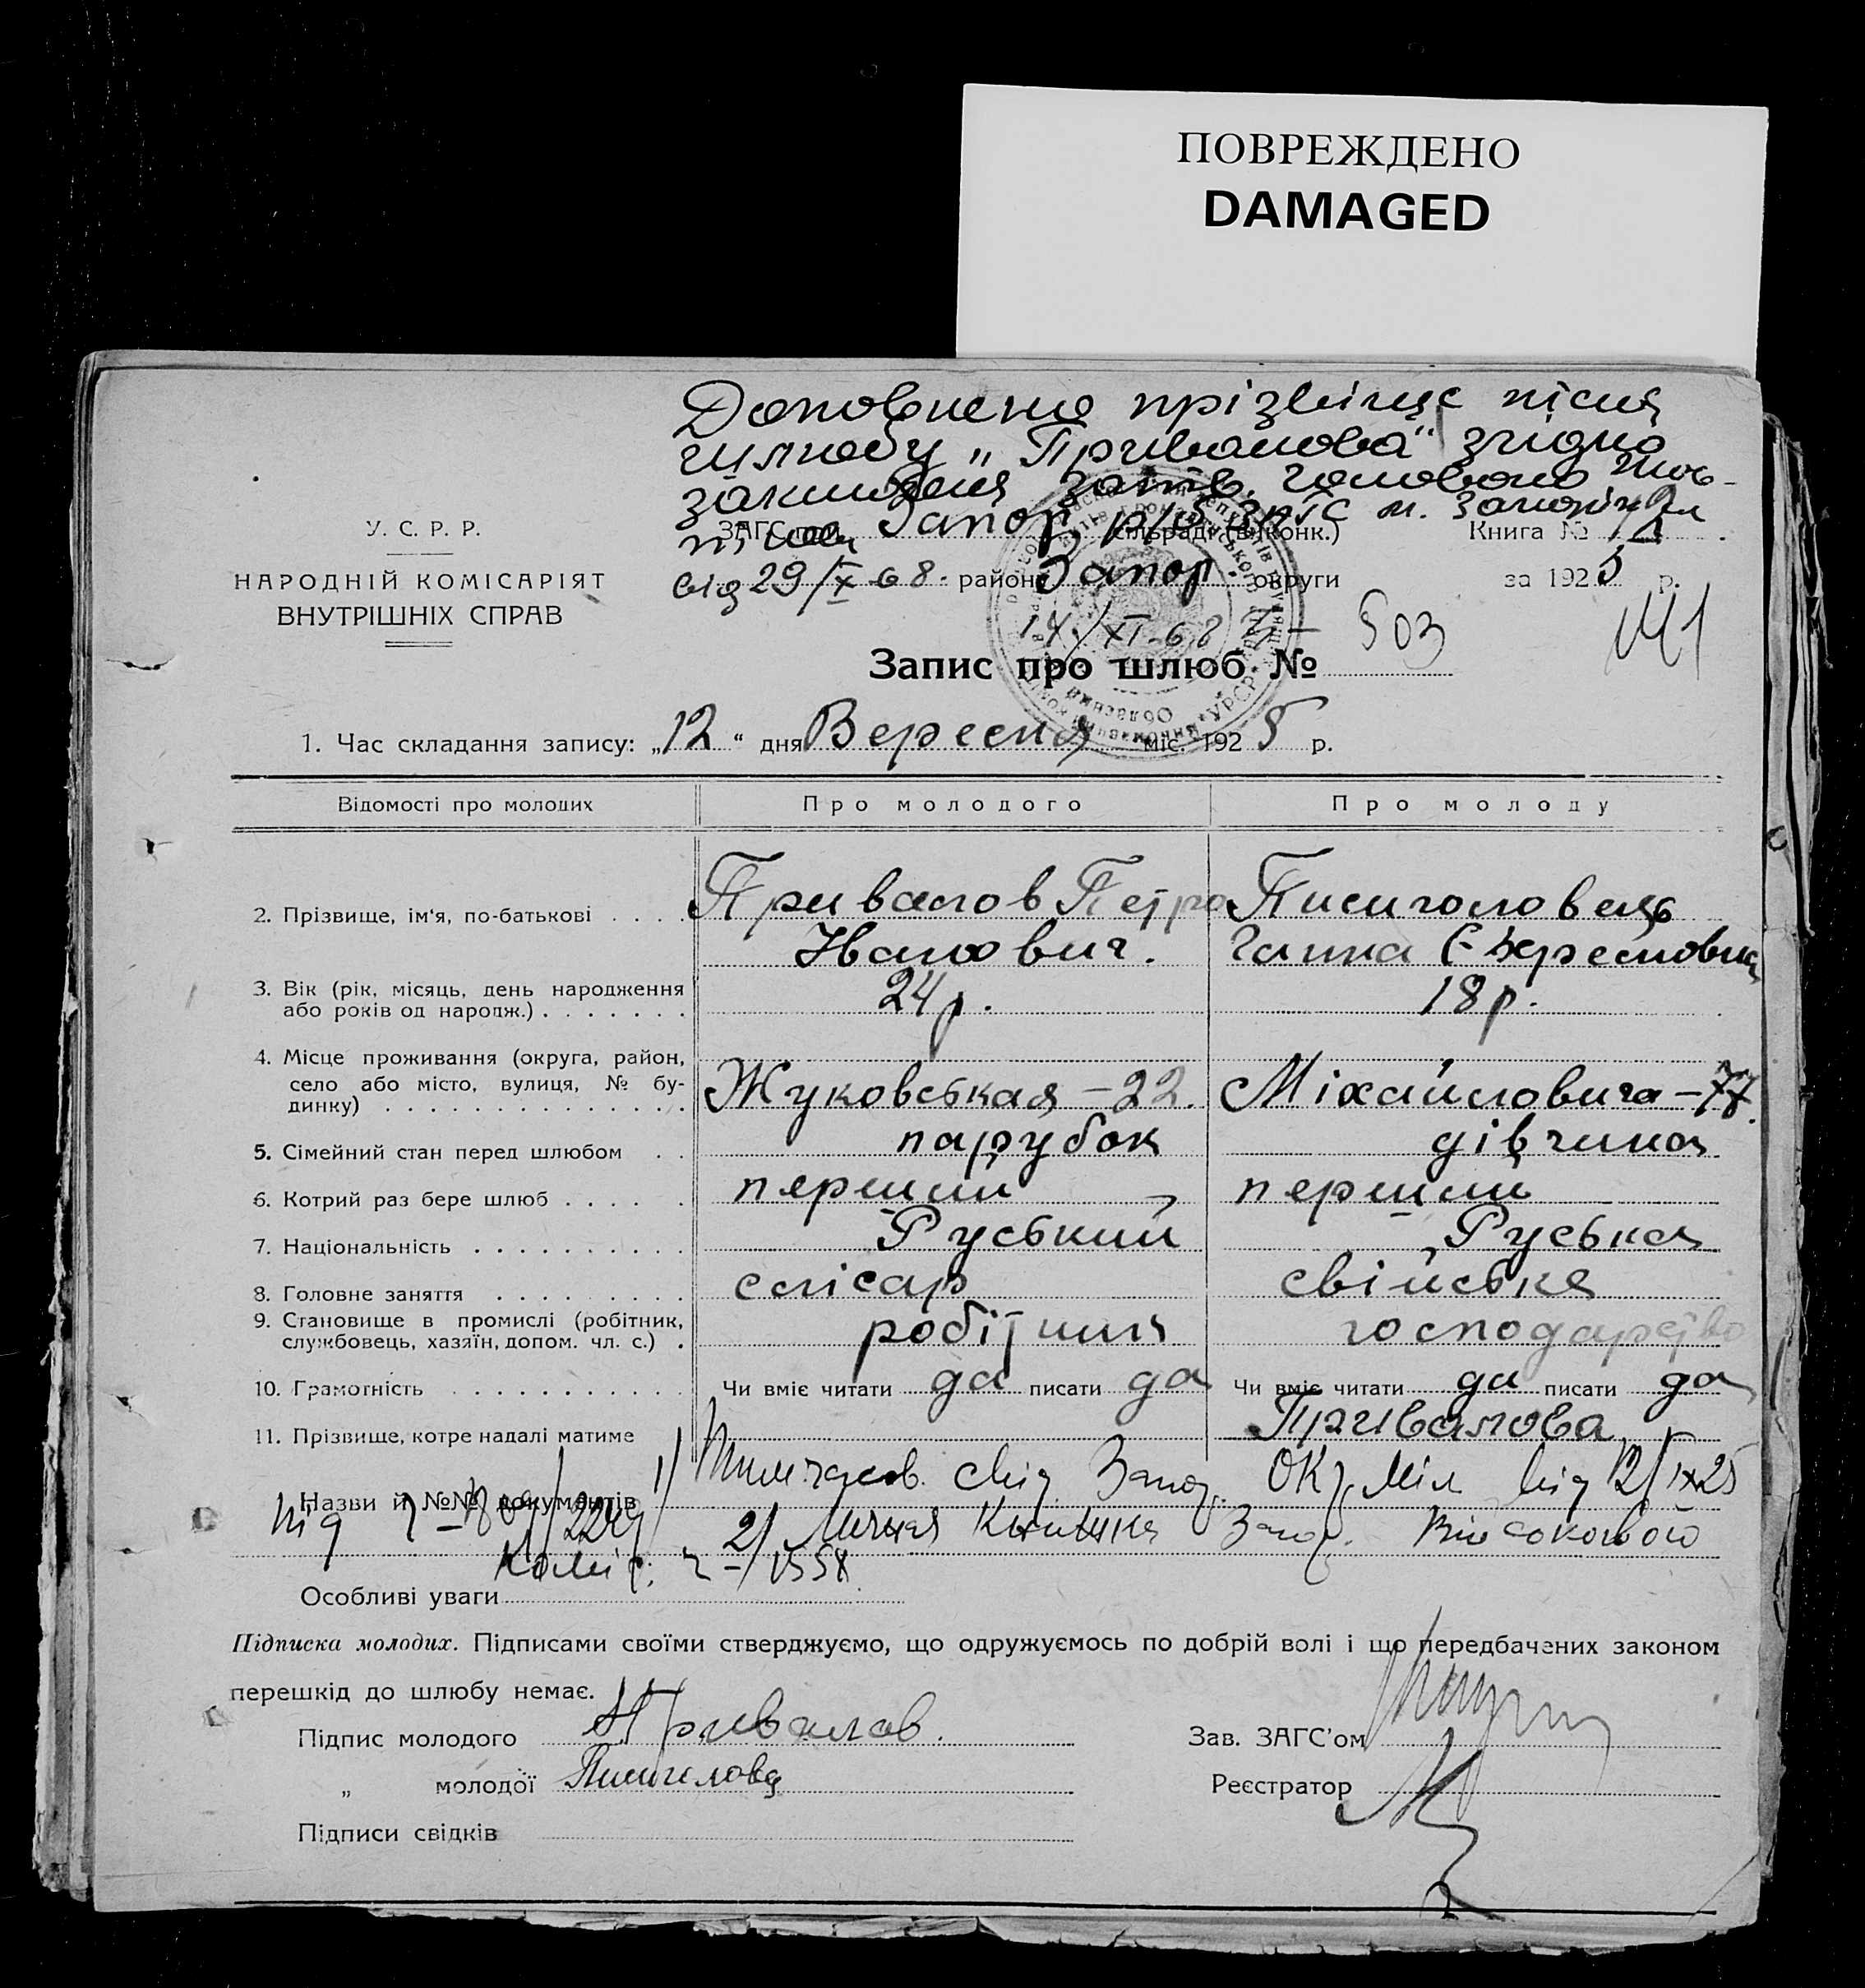 ПОВРЕЖДЕНО
DAMAGED
Доповнено прізвище після
шлюбу „Привалова" згідно
заключення затв. головою Жов-
тнев. р/б ЗАГС м. Запоріжжя
від 29/X 68.
У. С. Р. Р.
НАРОДНІЙ КОМІСАРІЯТ
ВНУТРІШНІХ СПРАВ
ЗАГС при Запор. сільраді (виконк.) Книга №
району Запор. округи за 1925 р.
14/XI-68
Запис про шлюб № 503
141
1. Час складання запису: „12" дня Вересня міс. 1925 р.
Відомості про молодих Про молодого Про молоду
2. Прізвище, ім'я, по-батькові . . . . Привалов Петро Іванович. Пишголовець Ганна
3. Вік (рік, місяць, день народження
або років од народж.) . . . . . . . 24 р. 18 р.
4. Місце проживання (округа, район,
село або місто, вулиця, № бу-
динку) . . . . . . . . . . . . . . Жуковськая – 22. Міхайловича – 77.
5. Сімейний стан перед шлюбом . . парубок дівчина
6. Котрий раз бере шлюб . . . . . перший перший
7. Національність . . . . . . . . . . Руський Руська
8. Головне заняття . . . . . . . . . слісар свійське
9. Становище в промислі (робітник,
службовець, хазяїн, допом. чл. с.) . робітник господарство
10. Грамотність . . . . . . . . . . . Чи вміє читати да писати да Чи вміє читати да писати да
11. Прізвище, котре надалі матиме Привалова
Назви й №№ документів 1/ Тимчасов. свід. Запор. Окр. Міл. від 12/IX 25
2/ Личная Книжка Запор. Військового
Коміс.
Особливі уваги
Підписка молодих. Підписами своїми стверджуємо, що одружуємось по добрій волі і що передбачених законом
перешкід до шлюбу немає.
Підпис молодого Привалов. Зав. ЗАГС'ом
„ молодої Реєстратор
Підписи свідків